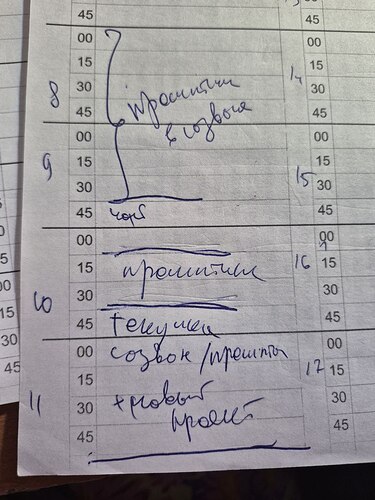 45
00 00
15 15
8 30 промптики 14 30
45 45
00 в 00
15 15
9 30 15 30
45 45
00 00
15 промптики 16 15
10 30 30
45 текучка 45
00 созвон/промпты 00
15 17 15
11 30 + новый 30
45 проект 45